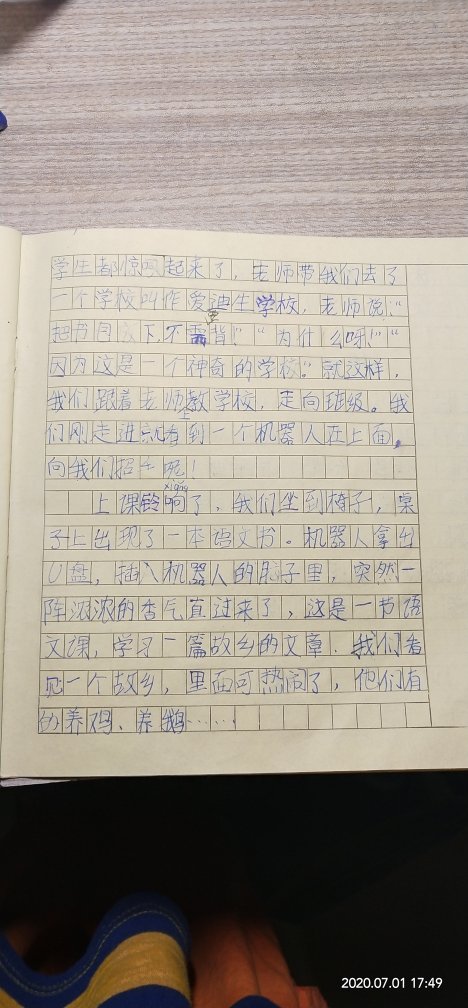 学生都惊叹起来了，老师带我们去了
一个学校叫作爱迪生学校，老师说：“
把书包放下，不需要背！”“为什么呀！”“
因为这是一个神奇的学校。”就这样，
我们跟着老师教学校，走向班级。我
们刚走进就看到一个机器人在上面，
向我们招手呢！
xiǎng
上课铃响了，我们坐到椅子，桌
子上出现了一本语文书。机器人拿出
U盘，插入机器人的肚子里，突然一
阵浓浓的香气直过来了，这是一节语
文课，学习一篇故乡的文章．我们看
见一个故乡，里面可热闹了，他们有
的养鸡、养鹅……
2020.07.01 17:49